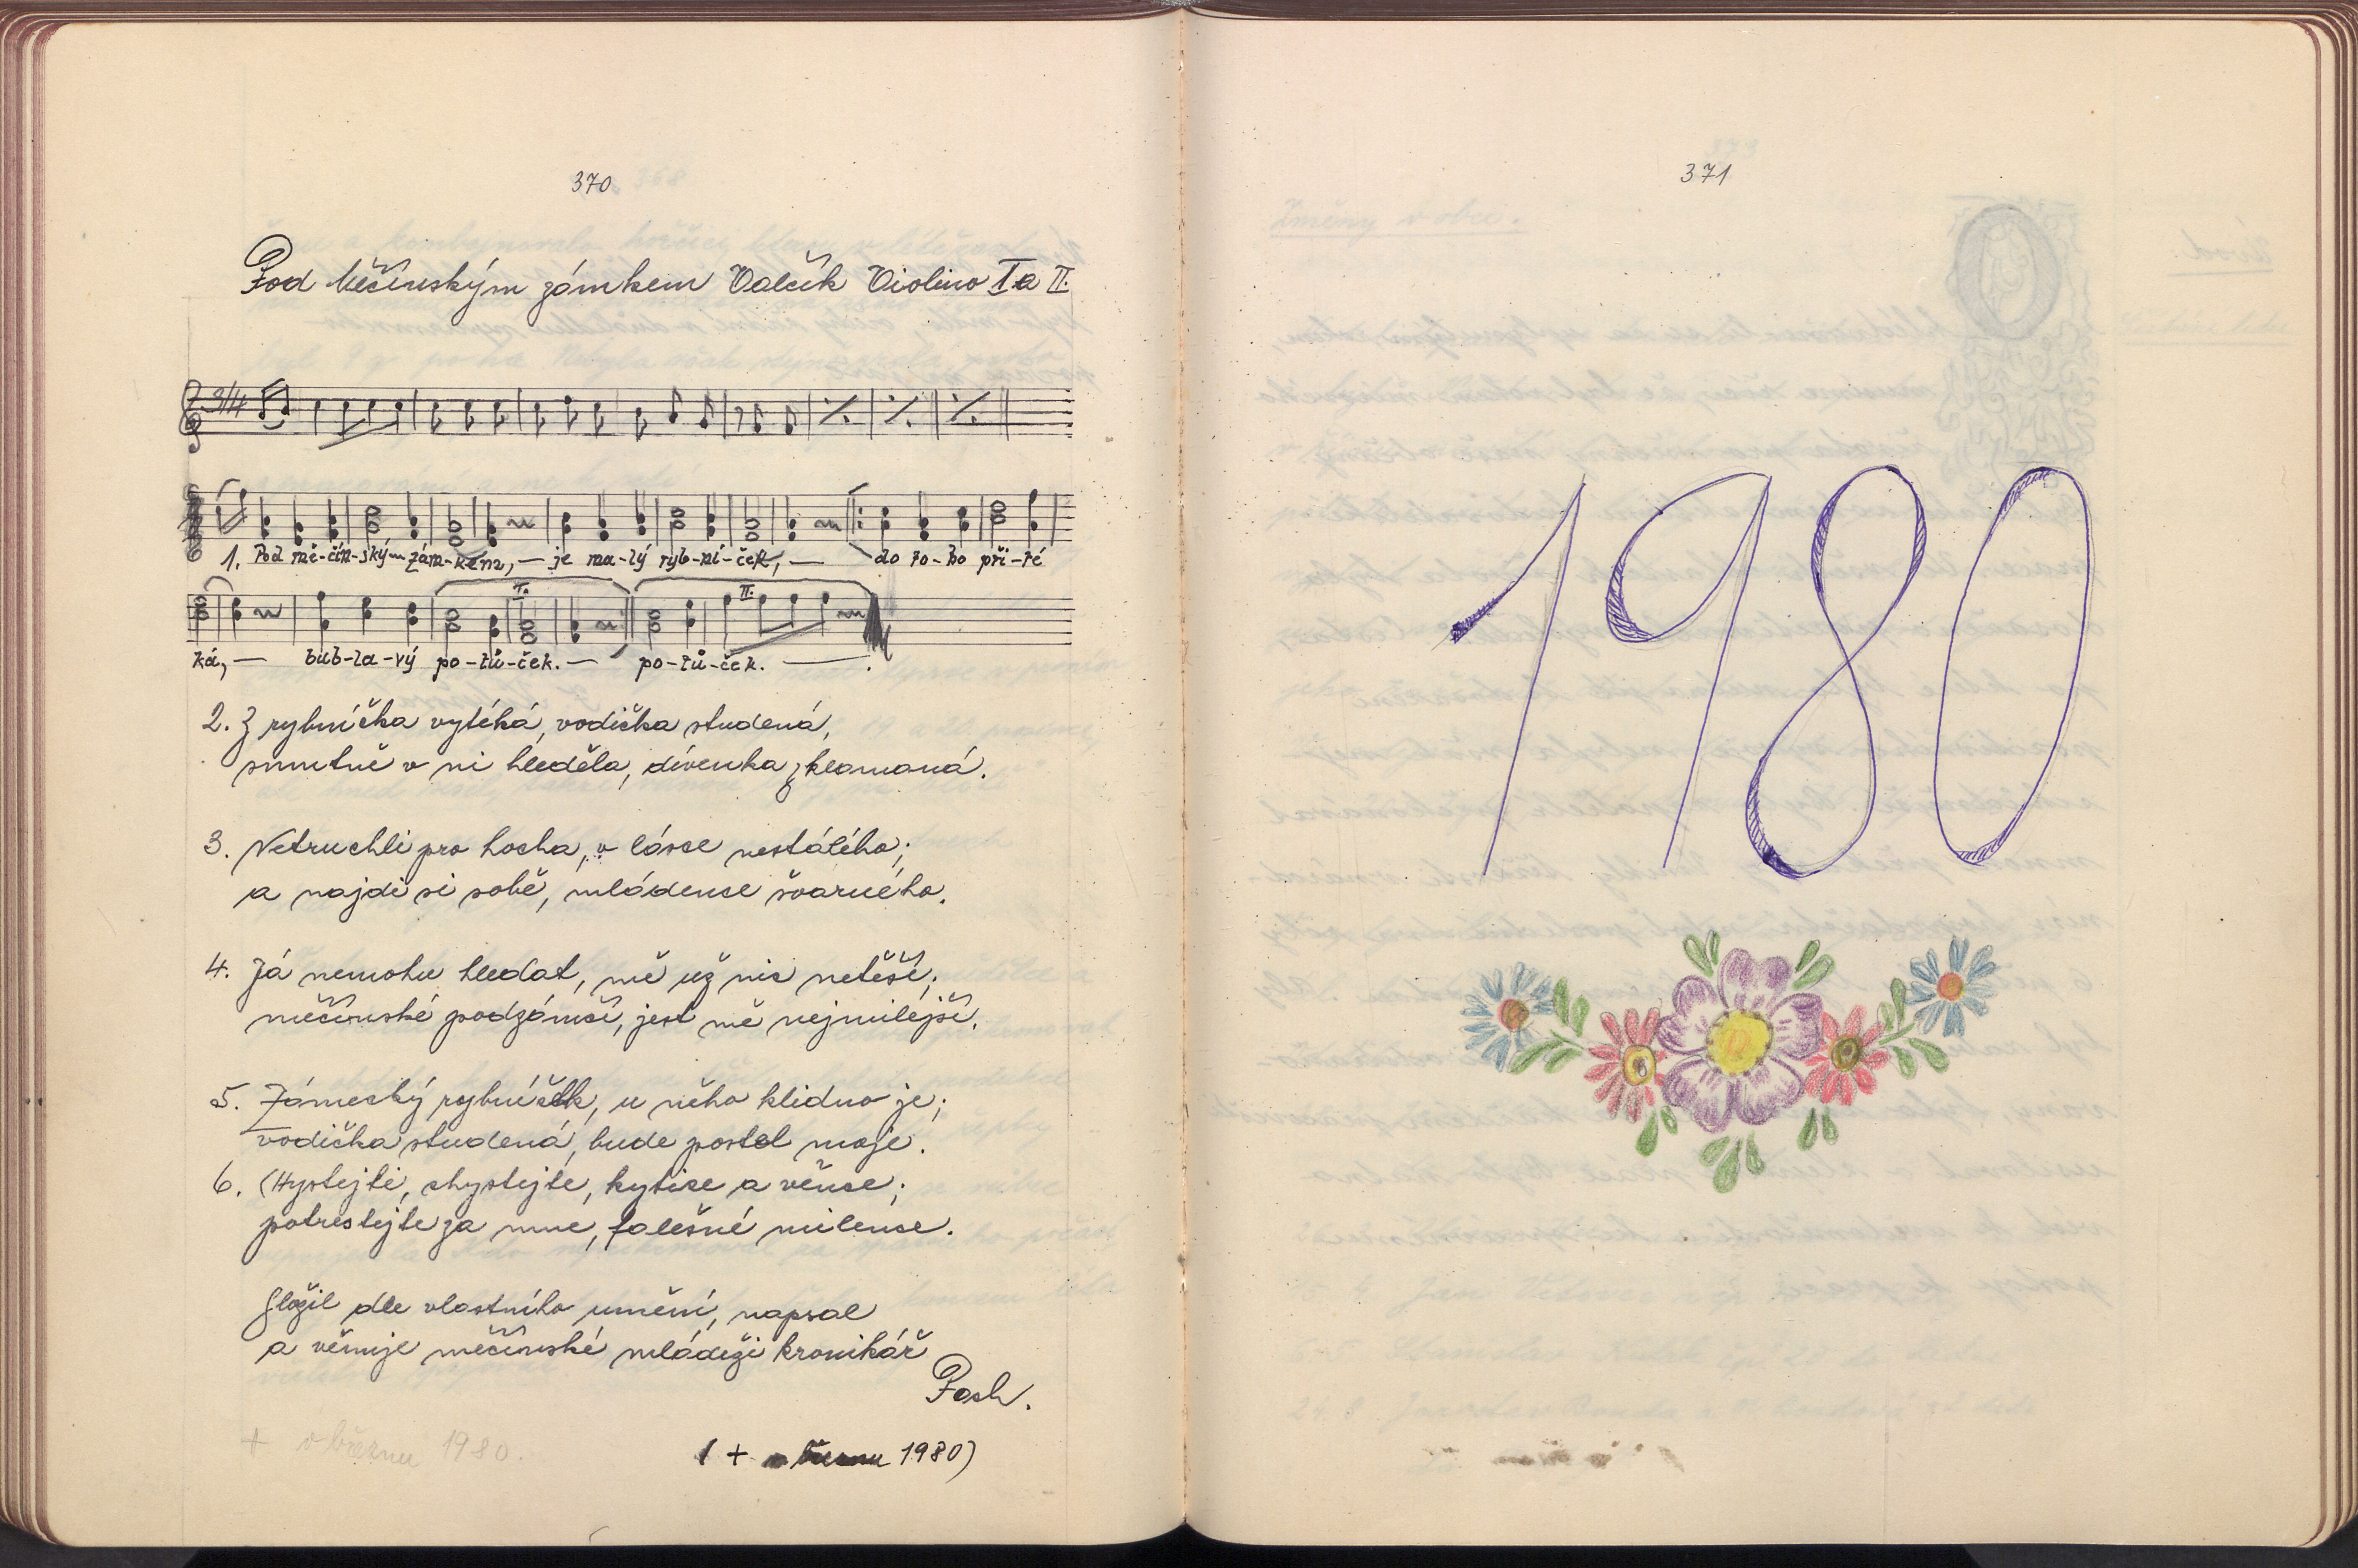 370
Pod Měčínským zámkem Valčík Violino I a II.
3/4
1. Pod mě-čín-ský-m zám-kem, — je ma-lý ryb-ní-ček, — do to-ho při-té
I. II.
ká, — bub-la-vý po-tů-ček. — po-tů-ček. — .
2. Z rybníčka vytéká, vodička studená,
smutně v ni hleděla, dívenka zklamaná.
3. Netruchli pro hocha, v lásce nestálého;
a najdi si sobě, mládence švarného.
4. Já nemohu hledat, mě už nic netěší;
měčínské podzámčí, jest mě nejmilejší.
5. Zámecký rybníček, u něho klidno je;
vodička studená, bude postel moje.
6. Chystejte, chystejte, kytice a věnce;
potrestejte za mne, falešné milence.
Složil dle vlastního umění, napsal
a věnuje měčínské mládeži kronikář
Pech.
+ v březnu 1980.
( + v březnu 1980)
371
1980